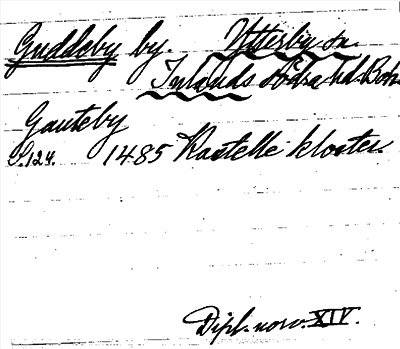 Guddeby by. Ytterby sn.
Inlands Södra hd. Boh.
Gauteby
S.124. 1485 Kastelle kloster.
Dipl. norv. XIV.